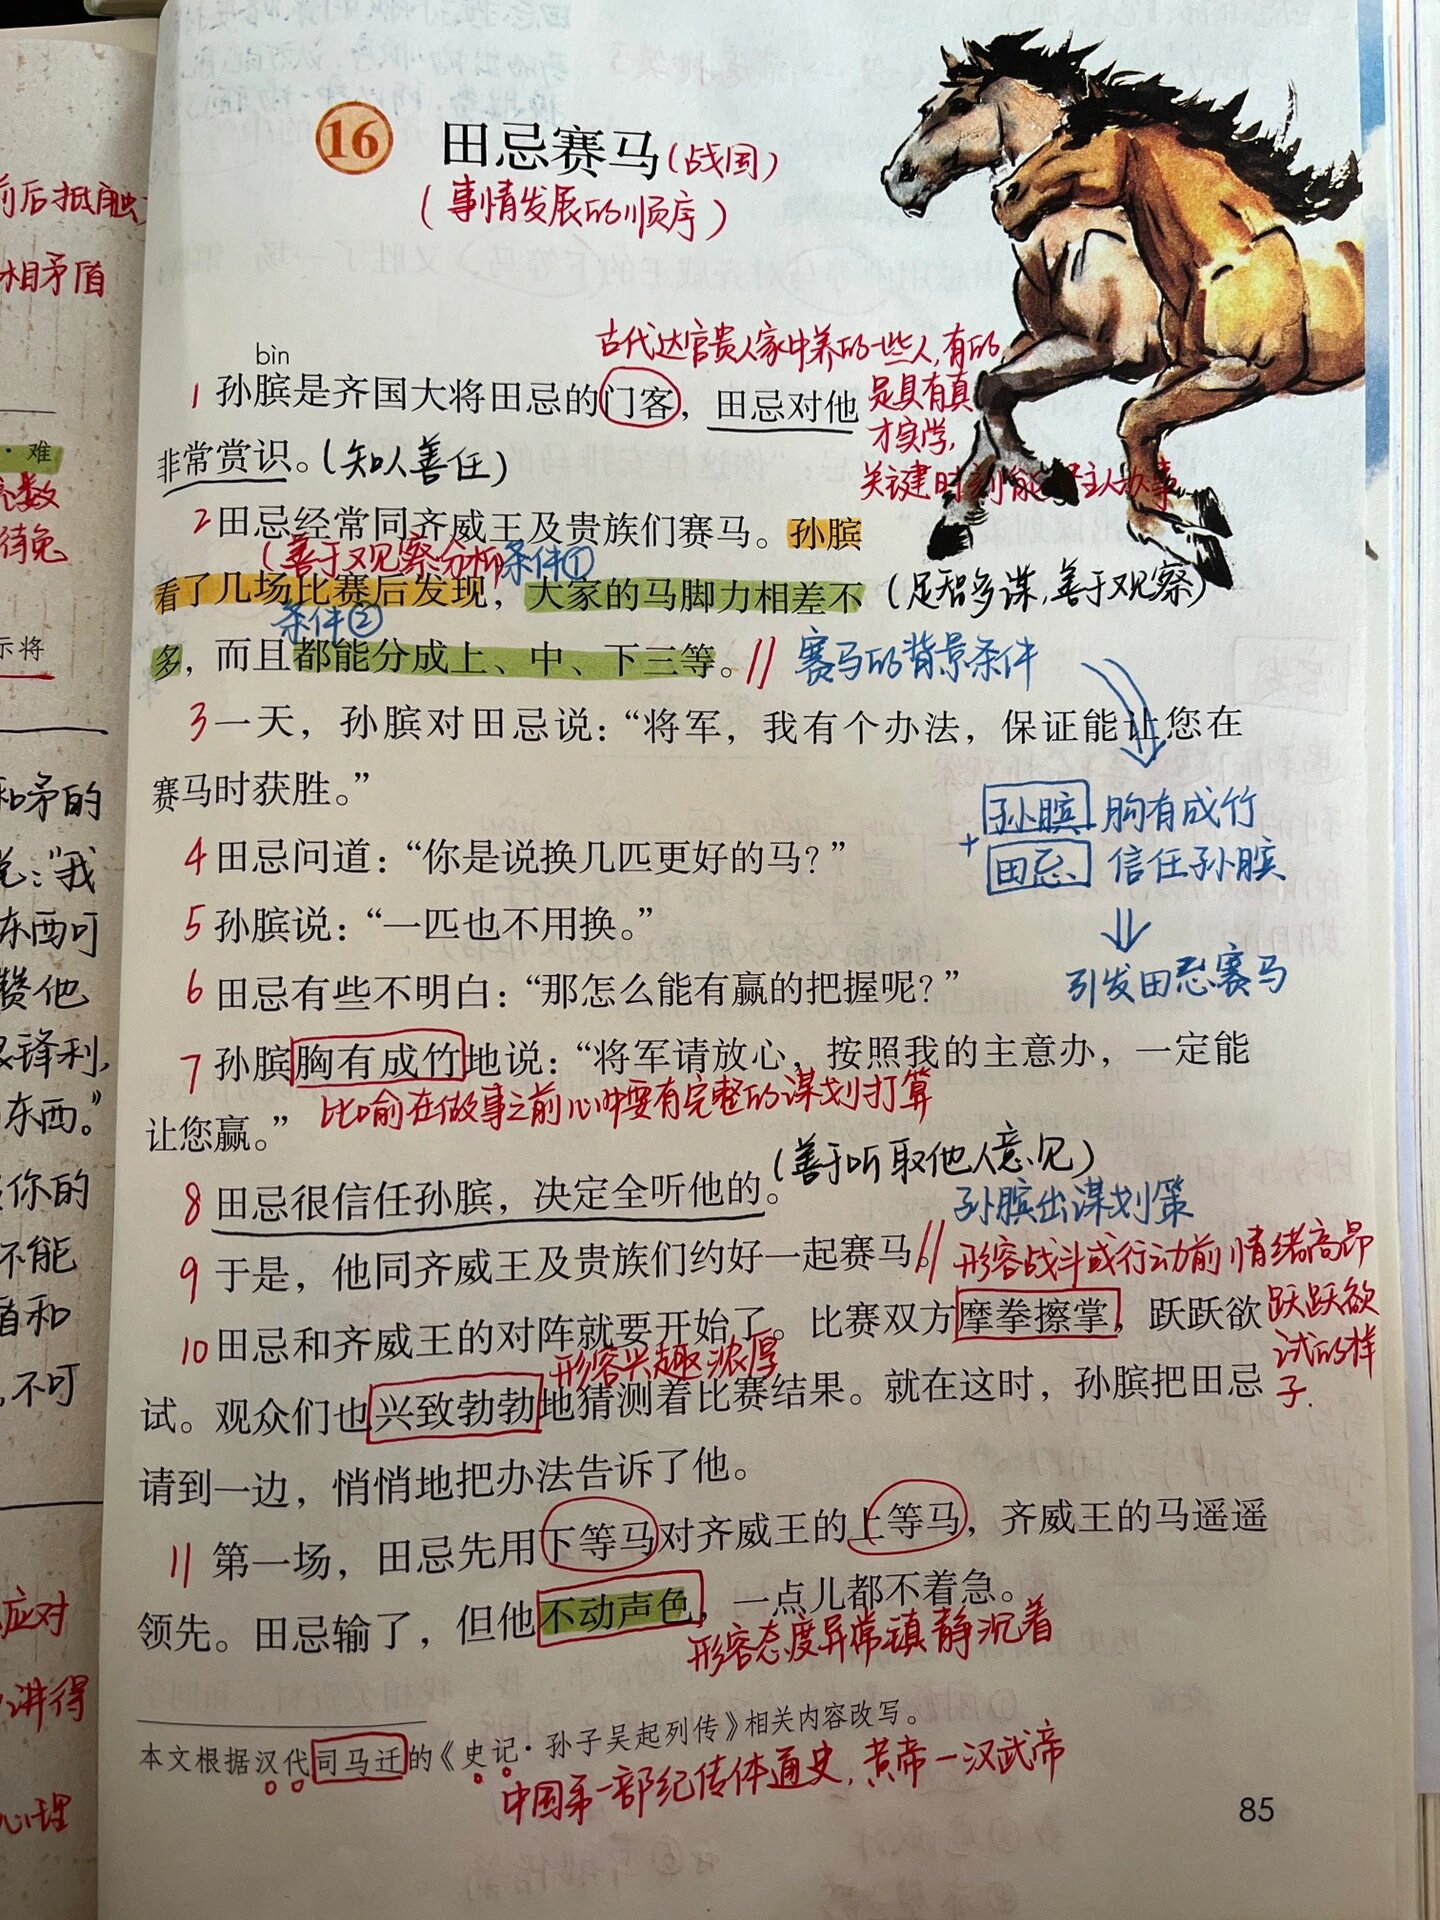 16 田忌赛马(战国)
(事情发展的顺序)
古代达官贵人家中养的一些人,有的
是具有真
才实学,
关键时刻能 主人办事
bìn
1 孙膑是齐国大将田忌的门客,田忌对他
非常赏识。(知人善任)
2 田忌经常同齐威王及贵族们赛马。孙膑
(善于观察分析 条件①
看了几场比赛后发现,大家的马脚力相差不 (足智多谋,善于观察)
条件②
多,而且都能分成上、中、下三等。// 赛马的背景条件
3 一天,孙膑对田忌说:“将军,我有个办法,保证能让您在
赛马时获胜。”
孙膑 胸有成竹
4 田忌问道:“你是说换几匹更好的马?”
+ 田忌 信任孙膑
5 孙膑说:“一匹也不用换。”
6 田忌有些不明白:“那怎么能有赢的把握呢?”
引发田忌赛马
7 孙膑胸有成竹地说:“将军请放心,按照我的主意办,一定能
比喻在做事之前心中要有完整的谋划打算
让您赢。”
8 田忌很信任孙膑,决定全听他的。(善于听取他人意见)
孙膑出谋划策
9 于是,他同齐威王及贵族们约好一起赛马。//
形容战斗或行动前情绪高昂
跃跃欲
试的样
子.
10 田忌和齐威王的对阵就要开始了。比赛双方摩拳擦掌,跃跃欲
形容兴趣浓厚
试。观众们也兴致勃勃地猜测着比赛结果。就在这时,孙膑把田忌
请到一边,悄悄地把办法告诉了他。
11 第一场,田忌先用下等马对齐威王的上等马,齐威王的马遥遥
领先。田忌输了,但他不动声色,一点儿都不着急。
形容态度异常镇静沉着
本文根据汉代司马迁的《史记·孙子吴起列传》相关内容改写。
中国第一部纪传体通史,黄帝—汉武帝
85
前后抵触
相矛盾
·难
待兔
示将
和矛的
说:“我
东西可
赞他
锋利,
东西。”
你的
不能
盾和
,不可
应对
讲得
心理